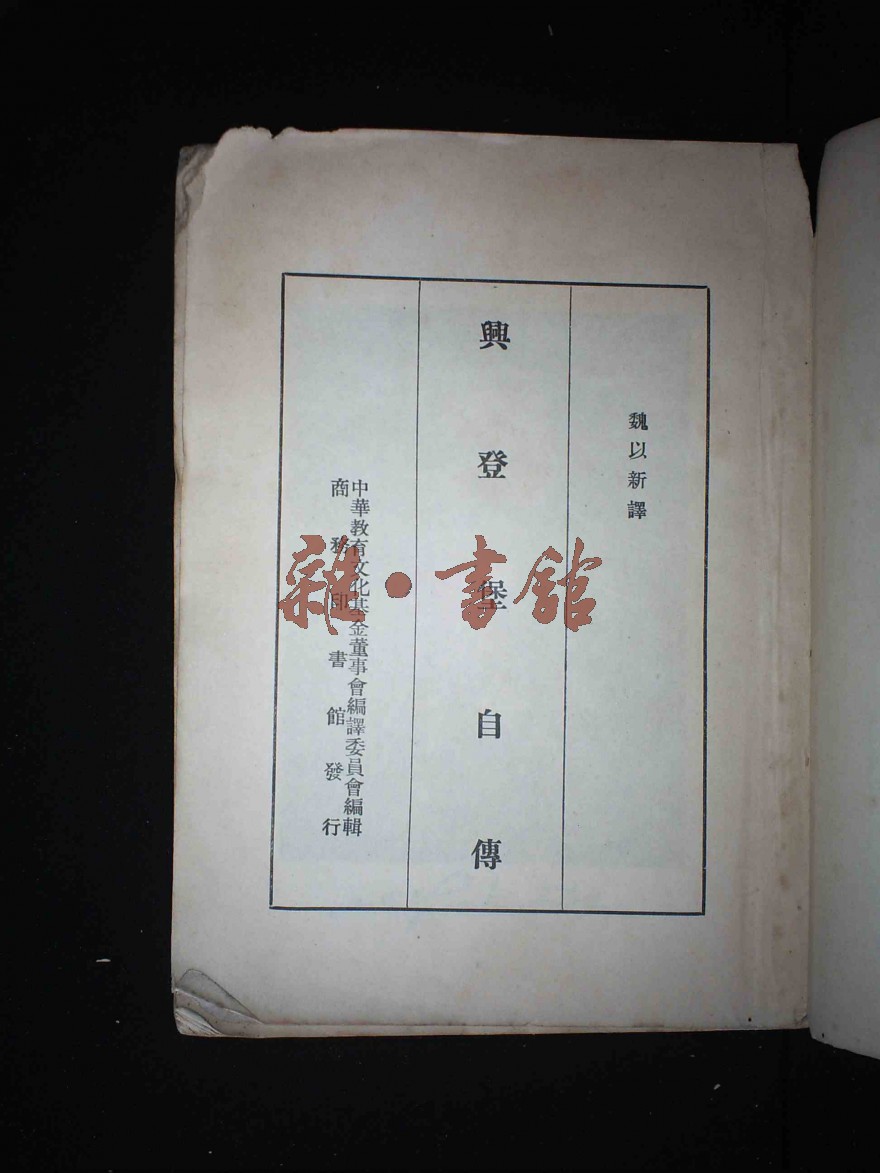 魏以新譯
興登堡自傳
中華教育文化基金董事會編譯委員會編輯
商務印書館發行
雜·書館